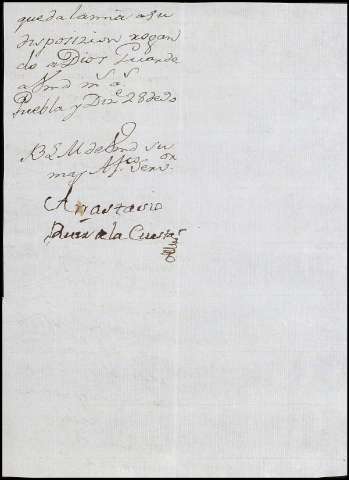 queda la mia a su
disposizion rogan
do a Dios Guarde
a Vmd m.s a.s
Puebla y Diz.e 28 de
B L M de Vmd su
mas Af.to Serv.or
Anastasio
Ruiz de la Cuesta